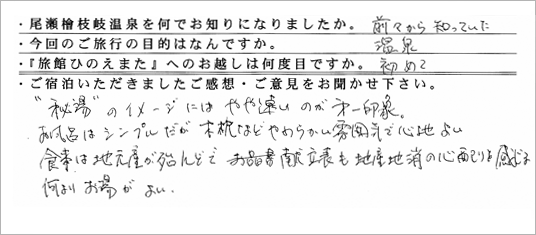 ・尾瀬檜枝岐温泉を何でお知りになりましたか。 前々から知っていた
・今回のご旅行の目的はなんですか。 温泉
・『旅館ひのえまた』へのお越しは何度目ですか。 初めて
・ご宿泊いただきましたご感想・ご意見をお聞かせ下さい。
"秘湯"のイメージにはやや遠いのが第一印象。
お風呂はシンプルだが木枕などやわらかい雰囲気で心地よい
食事は地元産が殆んどで お品書献立表も地産地消の心配りを感じる
何より お湯がよい.